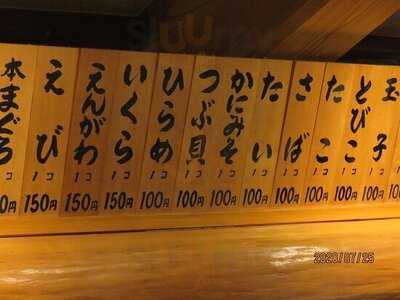 玉子 1コ 100円
とびこ 1コ 100円
たこ 1コ 100円
さば 1コ 100円
たい 1コ 100円
かにみそ 1コ 100円
つぶ貝 1コ 100円
ひらめ 1コ 100円
いくら 1コ 150円
えんがわ 1コ 150円
えび 1コ 150円
本まぐろ 1コ
2020/07/25